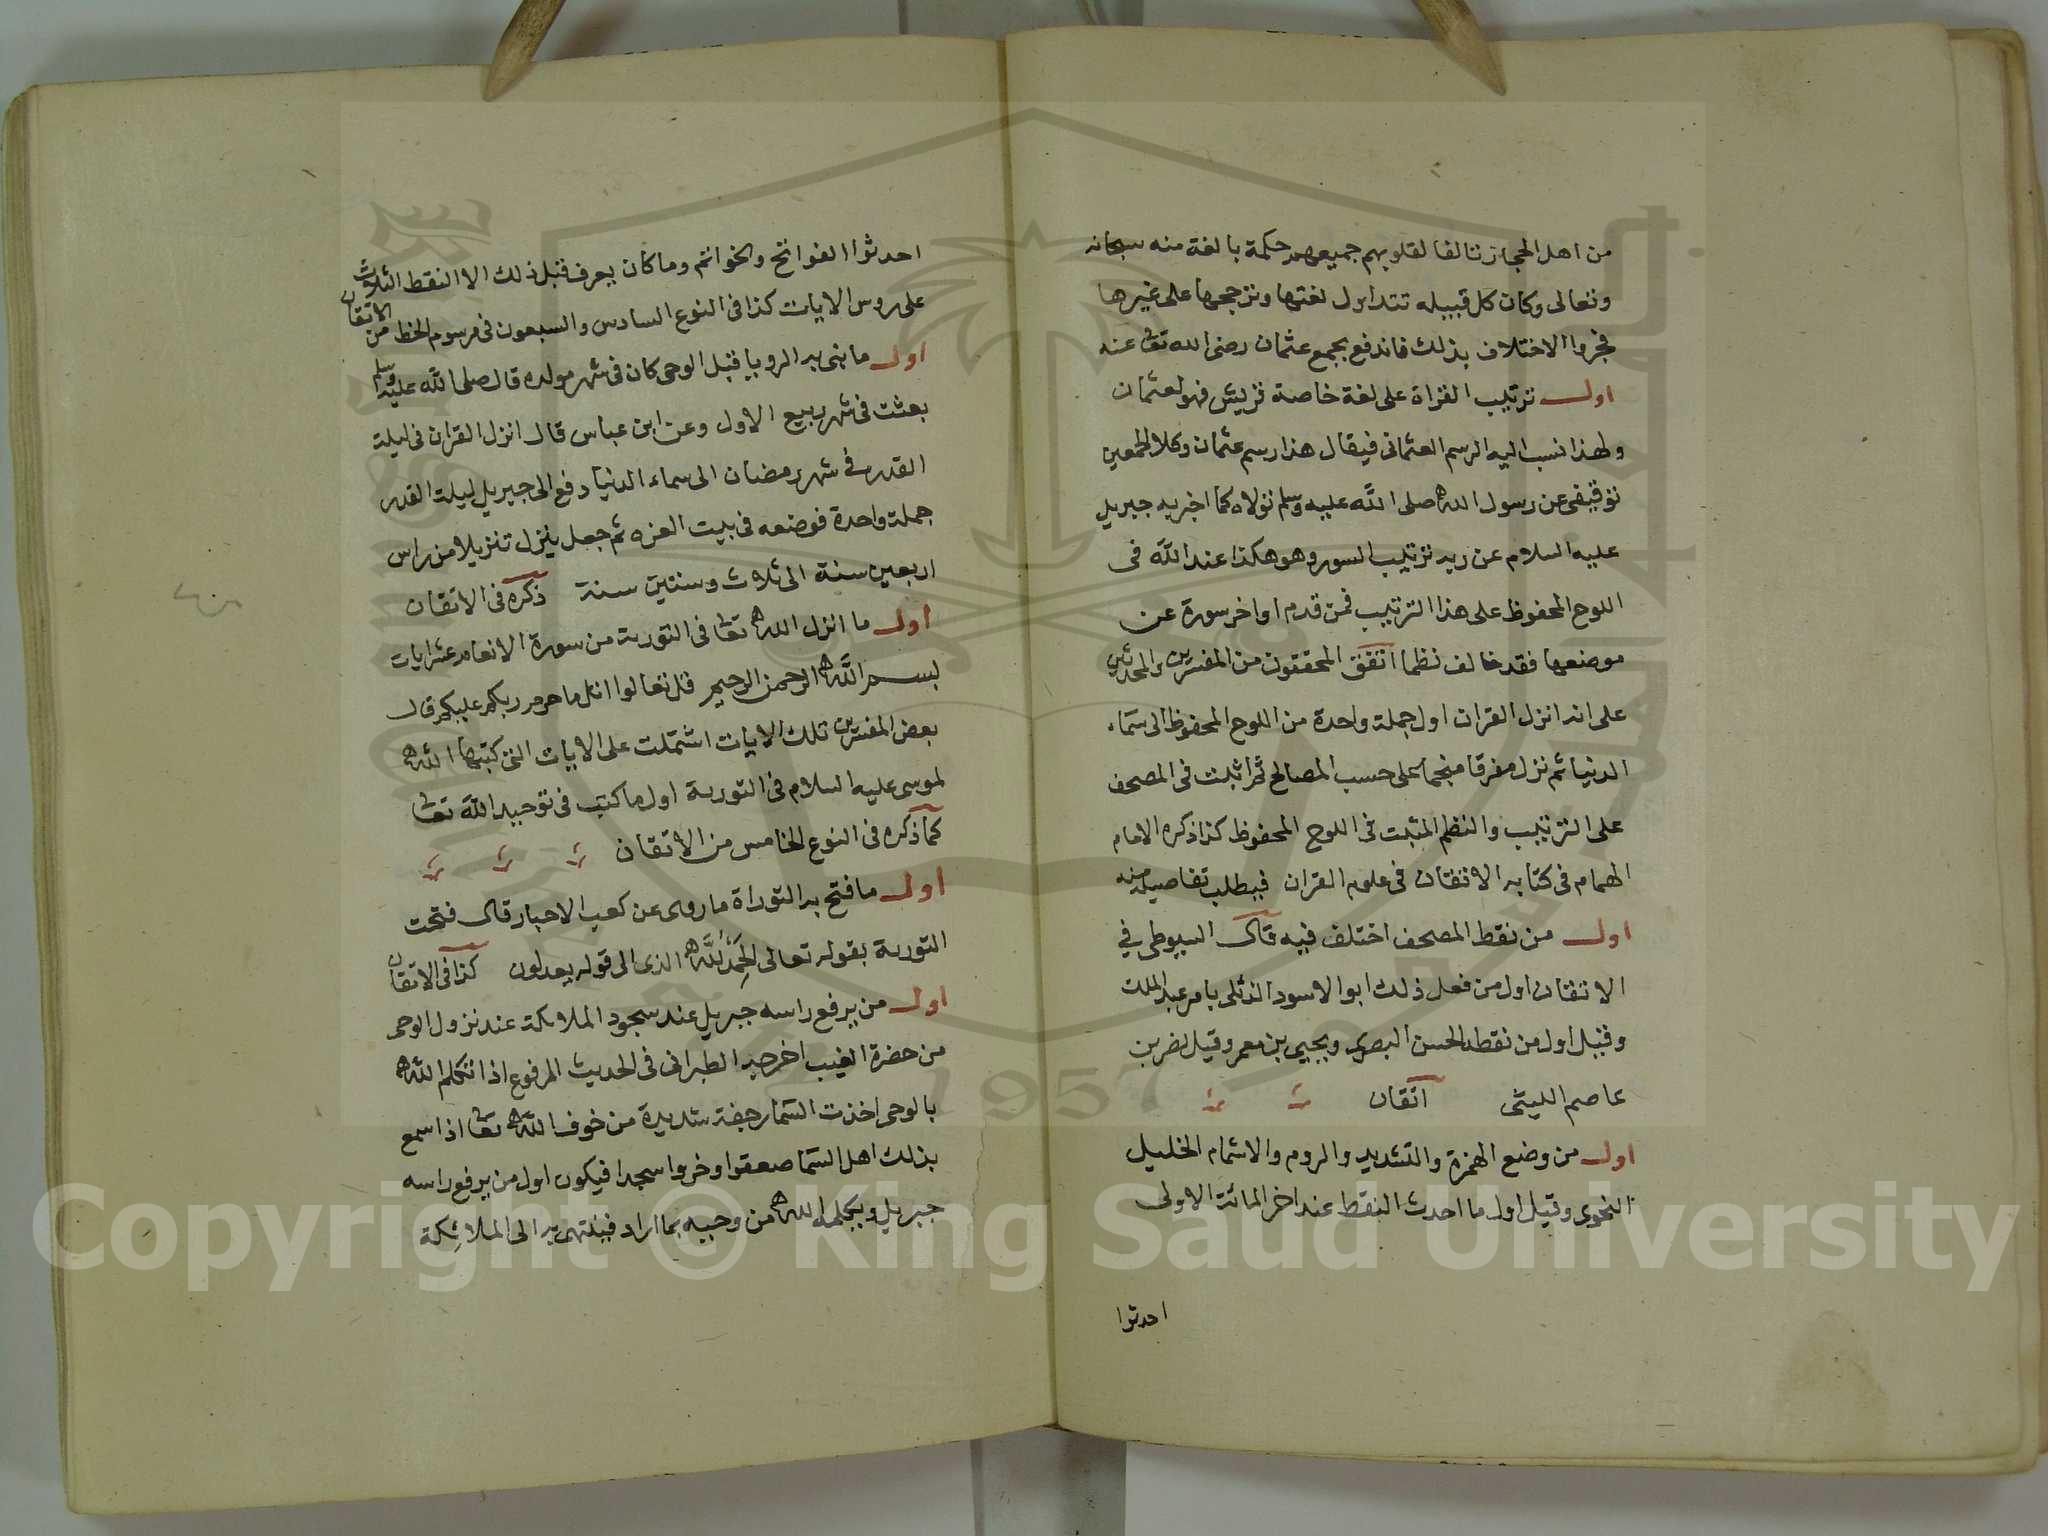 من اهل الحجاز تالفا لقلوبهم جميعهم حكمة بالغة منه سبحانه
وتعالى وكان كل قبيله تتداول لغتها وترجحها على غيرها
فجروا الاختلاف بذلك فاندفع بجمع عثمان رضى الله تعا عنه
اول ترتيب القراة على لغة خاصة قريش فهو لعثمان
ولهذا نسب اليه الرسم العثمانى فيقال هذا رسم عثمان وكلا الجمعين
توقيفى عن رسول الله صلى الله عليه وسلم تولاه كما اخبر به جبريل
عليه السلام عن ربه ترتيب السور وهو هكذا عند الله فى
اللوح المحفوظ على هذا الترتيب فمن قدم اواخر سورة عن
موضعها فقد خالف نظما اتفق المحققون من المفسرين والمحدثين
على انه انزل القران اول جملة واحدة من اللوح المحفوظ الى سماء
الدنيا ثم نزل مفرقا منجما على حسب المصالح ثم اثبت فى المصحف
على الترتيب والنظم المثبت فى اللوح المحفوظ كذا ذكره الامام
الهمام فى كتابه الاتقان فى علوم القران فيطلب تفاصيله منه
اول من نقط المصحف اختلف فيه قال السيوطى في
الاتقان اول من فعل ذلك ابو الاسود الدئلى بامر عبد الملك
وقيل اول من نقطه الحسن البصرى ويحيى بن معمر وقيل نصر بن
عاصم الليثى اتقان
اول من وضع الهمزة والتشديد والروم والاشمام الخليل
النحوى وقيل اول ما احدث النقط عند اخر المائة الاولى
احدثوا
احدثوا الفواتح والخواتم وما كان يعرف قبل ذلك الا النقط الثلاث
على روس الايات كذا فى النوع السادس والسبعون فى مرسوم الخط من الاتقان
اول ما بنى به الرويا قبل الوحى كان فى شهر مولده قال صلى الله عليه وسلم
بعثت فى شهر ربيع الاول وعن ابن عباس قال انزل القران فى ليلة
القدر فى شهر رمضان الى سماء الدنيا دفع الى جبريل ليلة القدر
جملة واحدة فوضعه فى بيت العزه ثم جعل ينزل تنزيلا من راس
اربعين سنة الى ثلاث وستين سنة ذكره فى الاتقان
اول ما انزل الله تعا فى التورىة من سورة الانعام عشر ايات
بسم الله الرحمن الرحيم قل تعالوا اتل ما حرم ربكم عليكم قال
بعض المفسرين تلك الايات اشتملت على الايات التى كتبها الله
لموسى عليه السلام فى التورية اول ما كتب فى توحيد الله تعا
كما ذكره فى النوع الخامس من الاتقان
اول ما فتح به التوراة ما روى عن كعب الاحبار قال فتحت
التورية بقوله تعالى الحمد لله الذى الى قوله يعدلون كذا فى الاتقان
اول من يرفع راسه جبريل عند سجود الملائكة عند نزول الوحى
من حضرة الغيب اخرجه الطبرانى فى الحديث المرفوع اذا تكلم الله
بالوحى اخذت السما رجفة شديدة من خوف الله تعا اذا سمع
بذلك اهل السما صعقوا وخروا سجدا فيكون اول من يرفع راسه
جبريل ويكلمه الله من وحيه بما اراد فينتهى به الى الملائكة
1957
Copyright © King Saud University